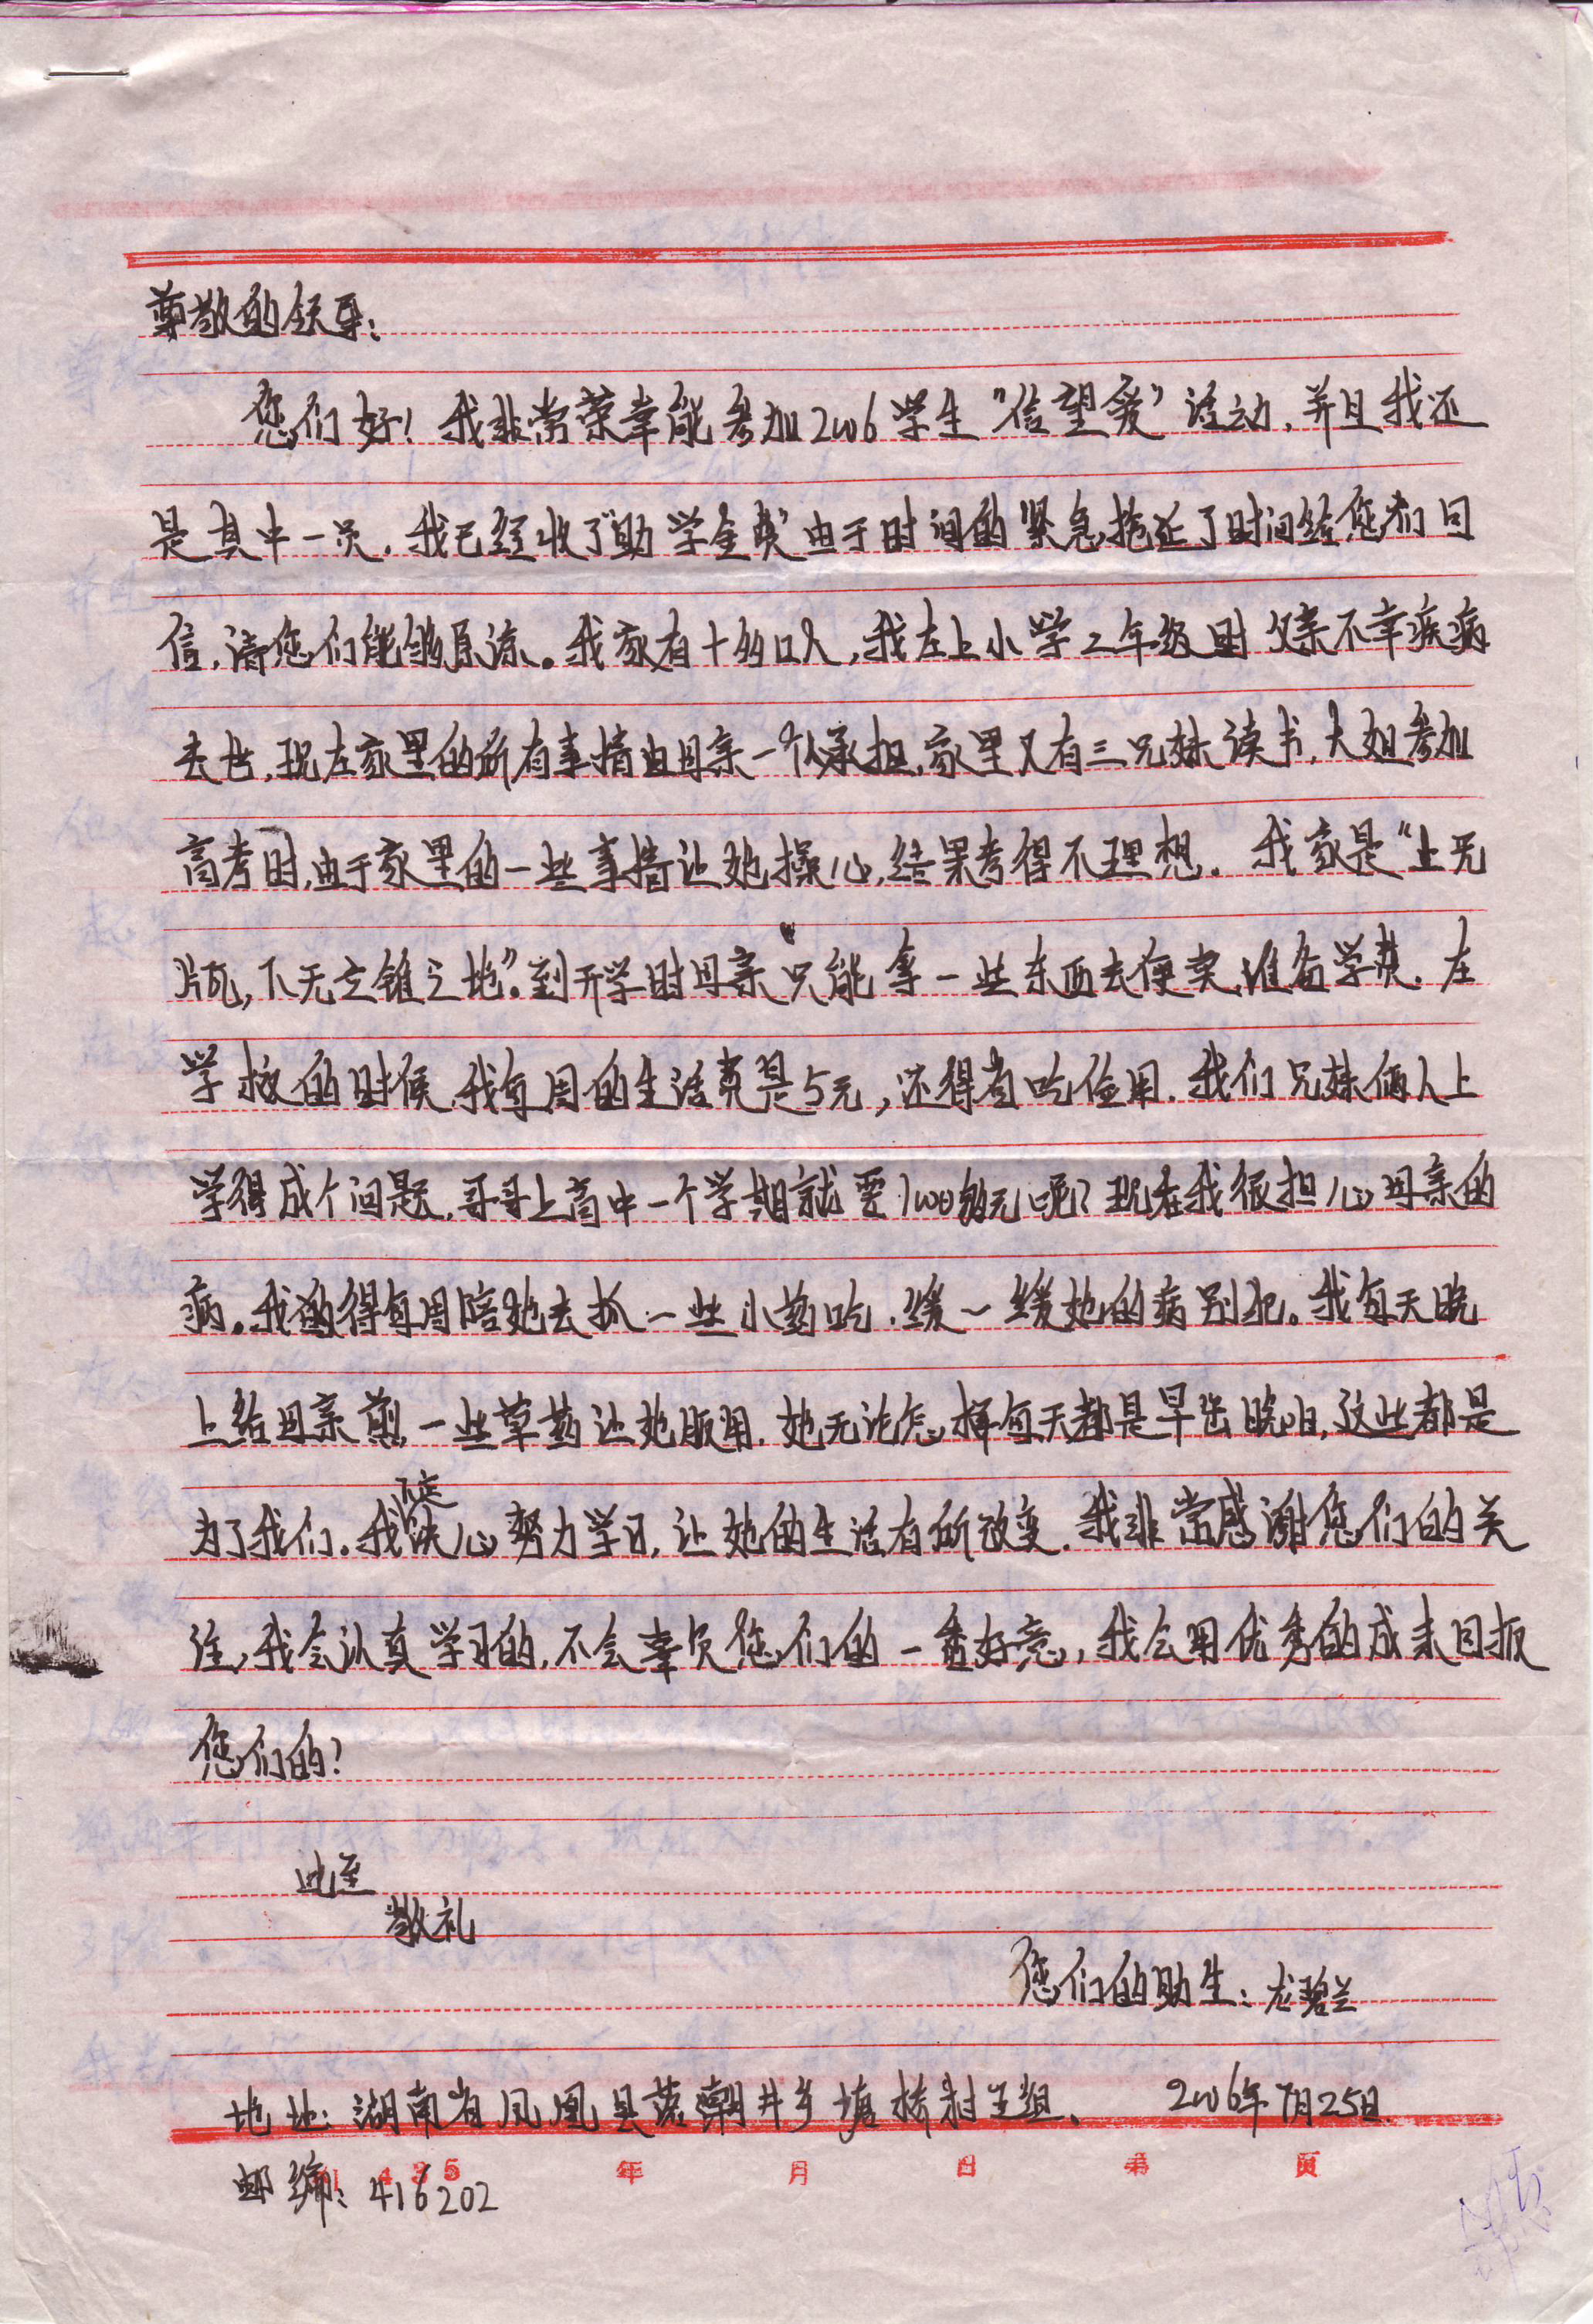 尊敬的领导:
您们好!我非常荣幸能参加2006学生"信望爱"活动,并且我还
是其中一员.我已经收了"助学金费"由于时间的紧急,拖延了时间给您们回
信,请您们能够原谅。我家有十多口人,我在上小学二年级时父亲不幸疾病
去世,现在家里的所有事情由母亲一个人承担,家里又有三兄妹读书,大姐参加
高考时,由于家里的一些事情让她操心,结果考得不理想.我家是"上无
片瓦,下无立锥之地"。到开学时母亲只能拿一些东西去便卖,准备学费.在
学校的时候,我每周的生活费是5元,还得省吃俭用.我们兄妹俩人上
学得成个问题,哥哥上高中一个学期就要1000多元呢?现在我很担心母亲的
病。我都得每周陪她去抓一些小药吃.缓一缓她的病别犯。我每天晚
上给母亲煎一些草药让她服用.她无论怎样每天都是早出晚归,这些都是
为了我们。我下定决心努力学习,让她的生活有所改变.我非常感谢您们的关
注,我会认真学习的,不会辜负您们的一番好意,我会用优秀的成来回报
您们的!
此至
敬礼
您们的助生:龙碧兰
地址:湖南省凤凰县落潮井乡塘桥村五组、 2006年7月25日.
435 年 月 日 第 页
邮编:416202